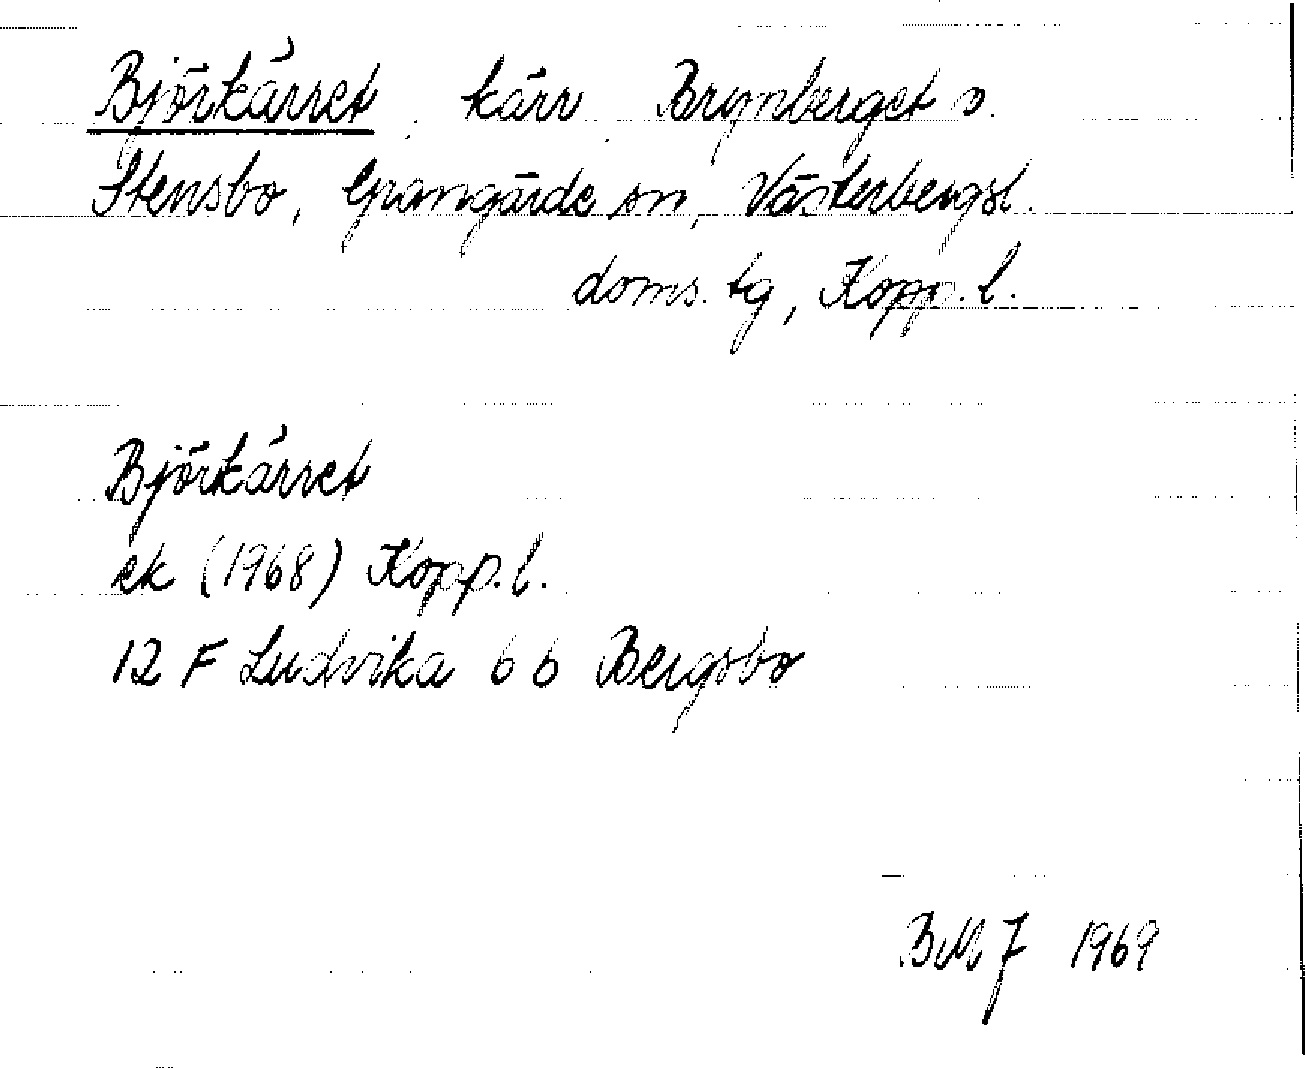 Björkärret, kärr, Brynberget o.
Stensbo, Grangärde sn, Västerbergsl.
doms. tg, Kopp. l.
Björkärret
ek (1968) Kopp. l.
12 F Ludvika 6 b Bergsbo
BMJ 1969